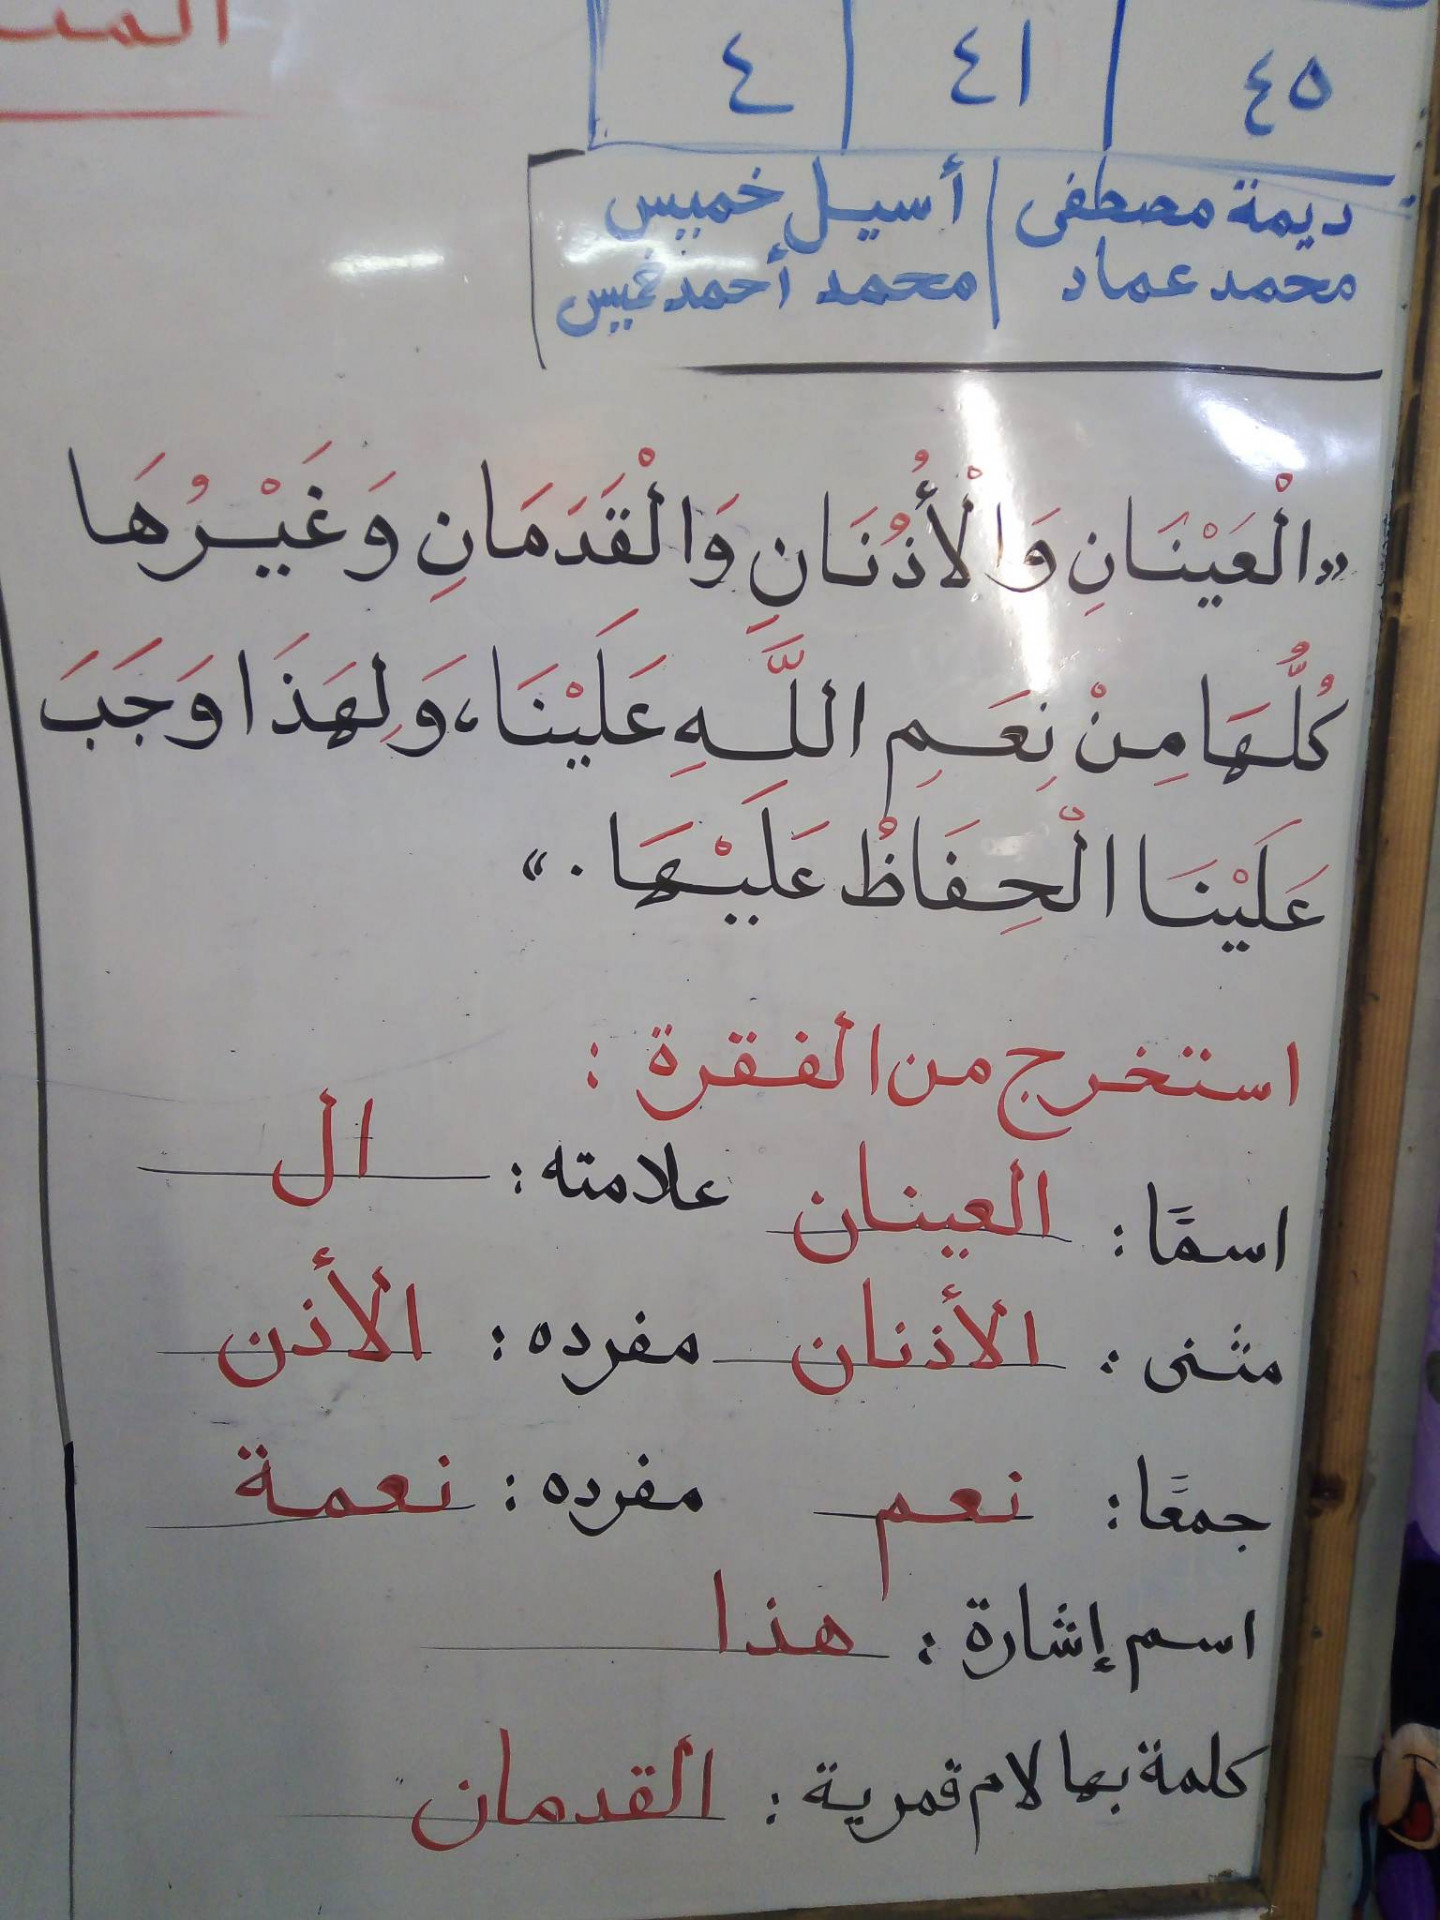 ٤٥ ٤١ ٤
ديمة مصطفى أسيل خميس
محمد عماد محمد أحمد خميس
«الْعَيْنَانِ وَالْأُذُنَانِ وَالْقَدَمَانِ وَغَيْرُهَا
كُلُّهَا مِنْ نِعَمِ اللَّهِ عَلَيْنَا، وَلِهَذَا وَجَبَ
عَلَيْنَا الْحِفَاظُ عَلَيْهَا.»
استخرج من الفقرة:
اسمًا: العينان علامته: ال
مثنى: الأذنان مفرده: الأذن
جمعًا: نعم مفرده: نعمة
اسم إشارة: هذا
كلمة بها لام قمرية: القدمان